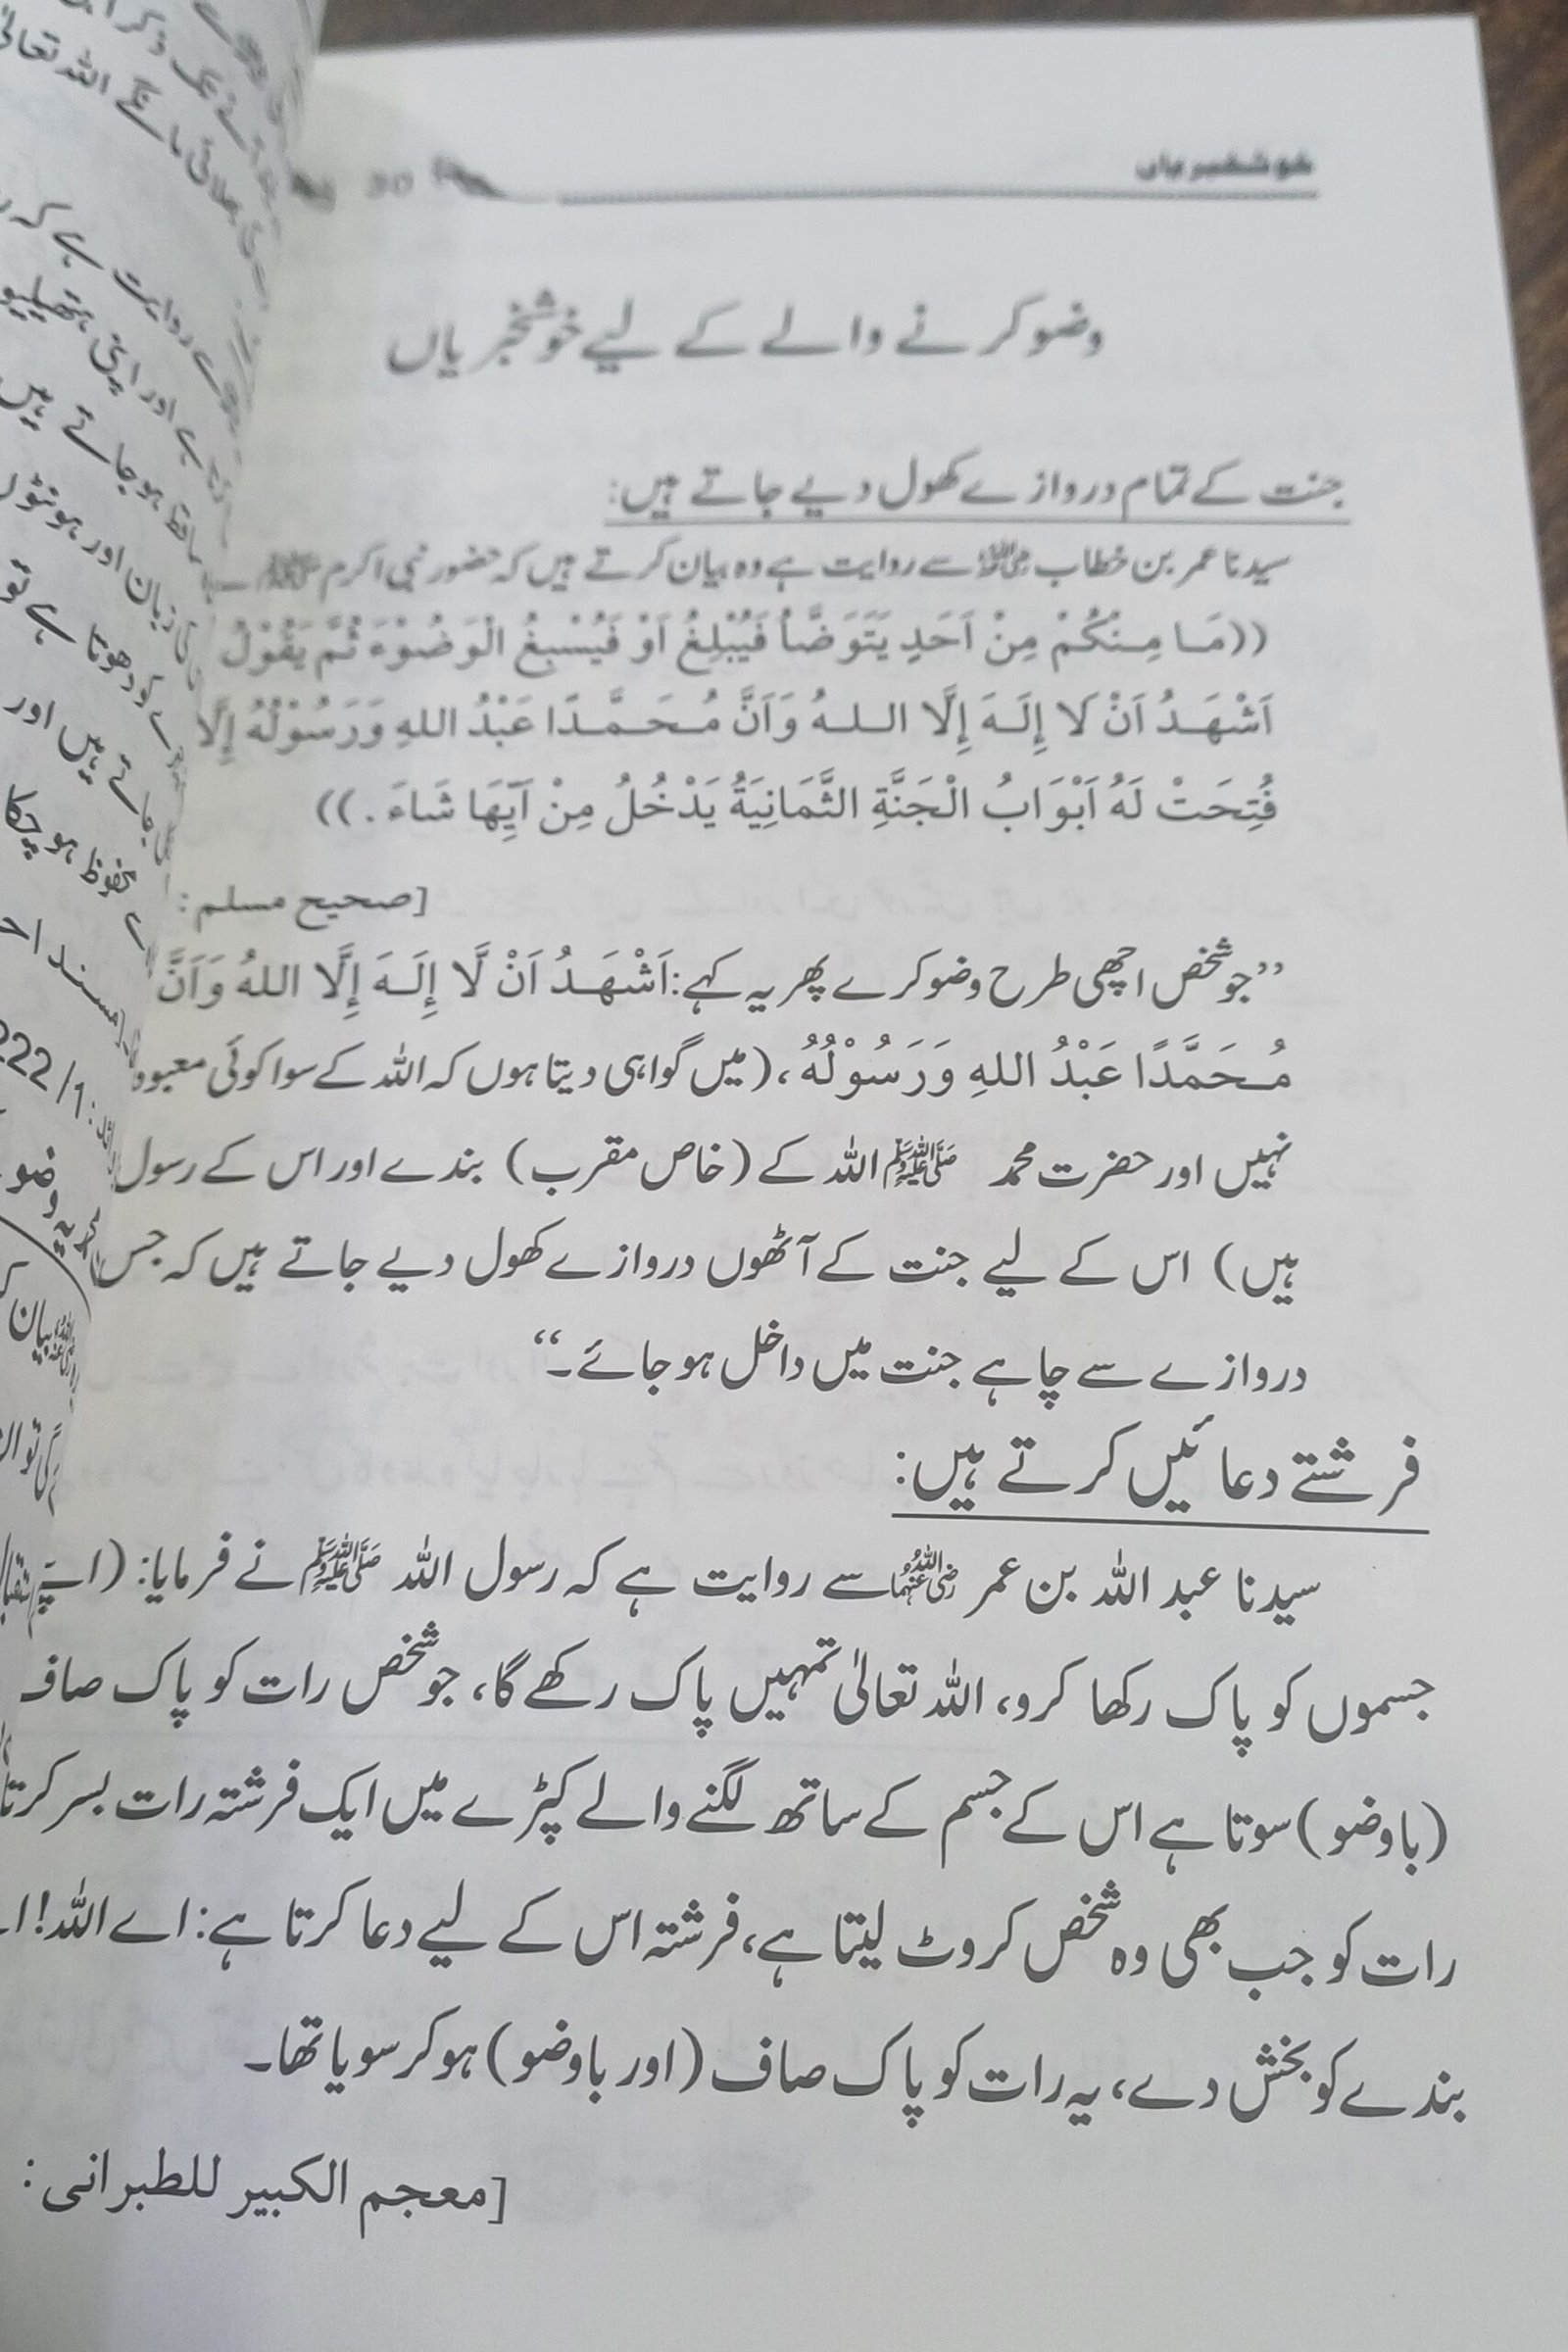 خوشخبریاں
30
وضو کرنے والے کے لیے خوشخبریاں
جنت کے تمام دروازے کھول دیے جاتے ہیں:
سیدنا عمر بن خطاب رضی اللہ عنہ سے روایت ہے وہ بیان کرتے ہیں کہ حضور نبی اکرم ﷺ
((مَا مِنْكُمْ مِنْ اَحَدٍ يَتَوَضَّأُ فَيُبْلِغُ اَوْ فَيُسْبِغُ الْوَضُوْءَ ثُمَّ يَقُوْلُ
اَشْهَدُ اَنْ لَا إِلَهَ إِلَّا اللهُ وَاَنَّ مُحَمَّدًا عَبْدُ اللهِ وَرَسُوْلُهُ إِلَّا
فُتِحَتْ لَهُ اَبْوَابُ الْجَنَّةِ الثَّمَانِيَةُ يَدْخُلُ مِنْ اَيِّهَا شَاءَ.))
[صحیح مسلم:
”جو شخص اچھی طرح وضو کرے پھر یہ کہے: اَشْهَدُ اَنْ لَّا إِلَهَ إِلَّا اللهُ وَاَنَّ
مُحَمَّدًا عَبْدُ اللهِ وَرَسُوْلُهُ، (میں گواہی دیتا ہوں کہ اللہ کے سوا کوئی معبود
نہیں اور حضرت محمد ﷺ اللہ کے (خاص مقرب) بندے اور اس کے رسول
ہیں) اس کے لیے جنت کے آٹھوں دروازے کھول دیے جاتے ہیں کہ جس
دروازے سے چاہے جنت میں داخل ہو جائے۔“
فرشتے دعائیں کرتے ہیں:
سیدنا عبد اللہ بن عمر رضی اللہ عنہما سے روایت ہے کہ رسول اللہ ﷺ نے فرمایا: (اپنے
جسموں کو پاک رکھا کرو، اللہ تعالیٰ تمہیں پاک رکھے گا، جو شخص رات کو پاک صاف
(باوضو) سوتا ہے اس کے جسم کے ساتھ لگنے والے کپڑے میں ایک فرشتہ رات بسر کرتا
رات کو جب بھی وہ شخص کروٹ لیتا ہے، فرشتہ اس کے لیے دعا کرتا ہے: اے اللہ!
بندے کو بخش دے، یہ رات کو پاک صاف (اور باوضو) ہو کر سویا تھا۔
[معجم الکبیر للطبرانی: